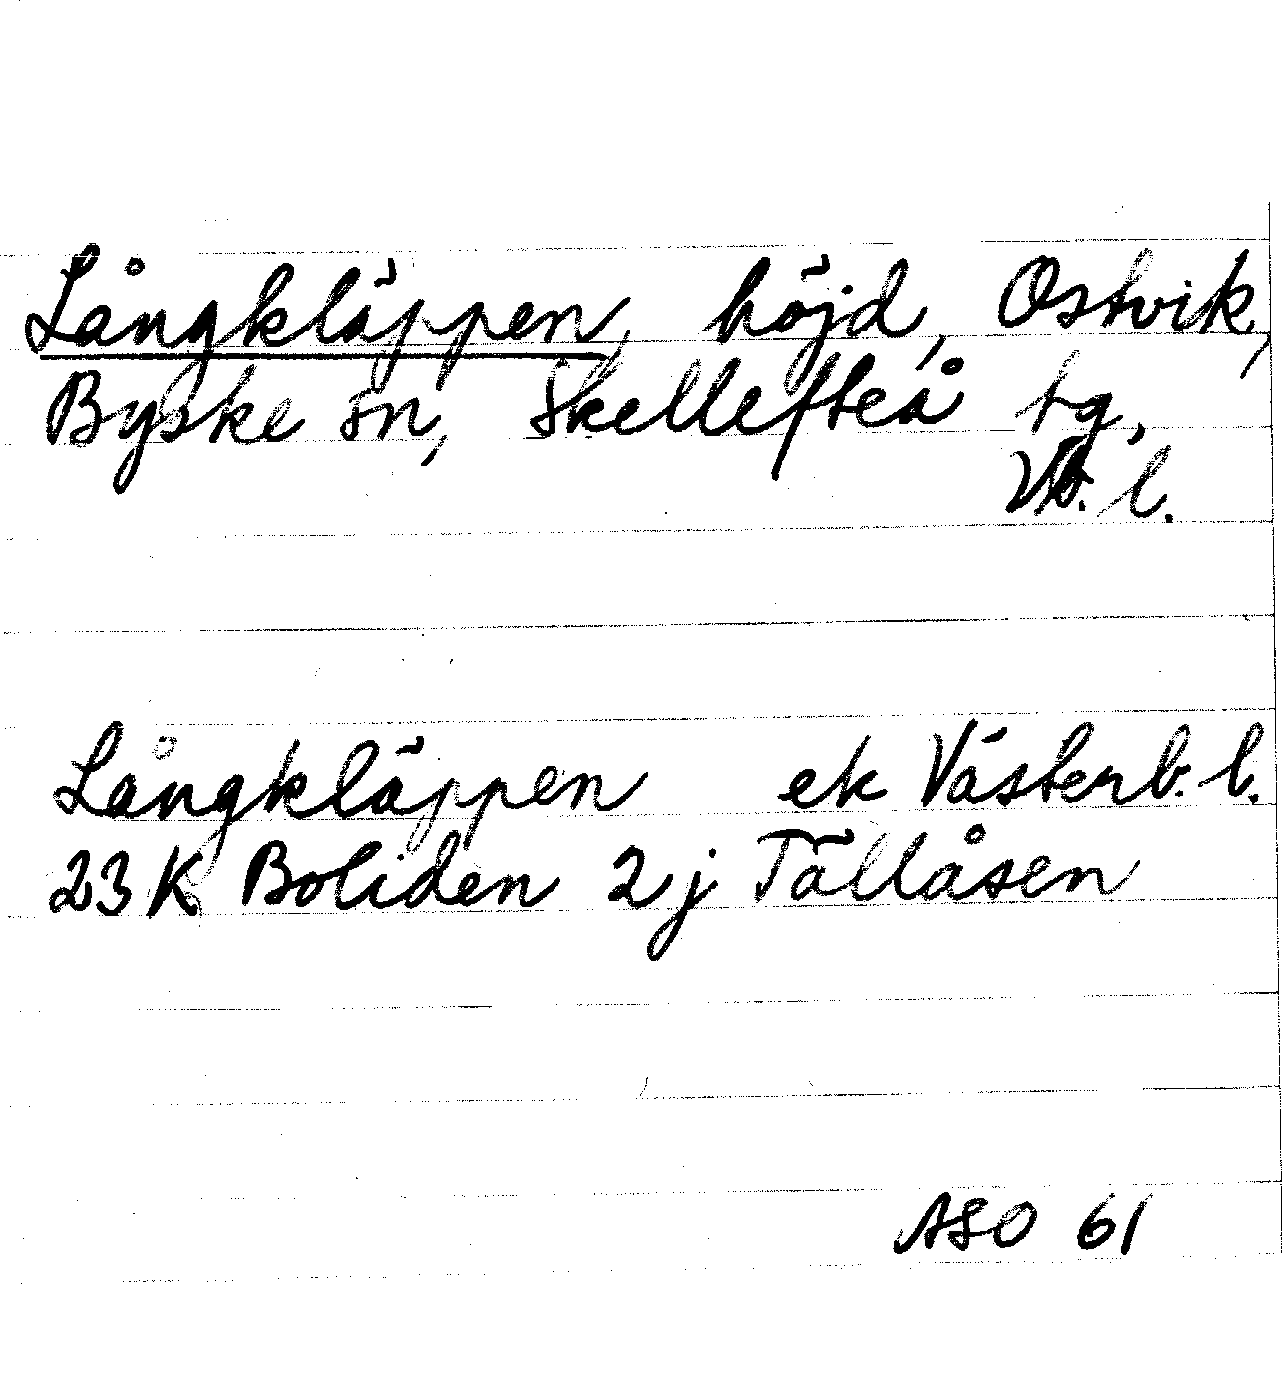 Långkläppen, höjd, Ostvik,
Byske sn, Skellefteå tg,
Vb. l.
Långkläppen ek Västerb. l.
23 K Boliden 2j Tällåsen
ASO 61